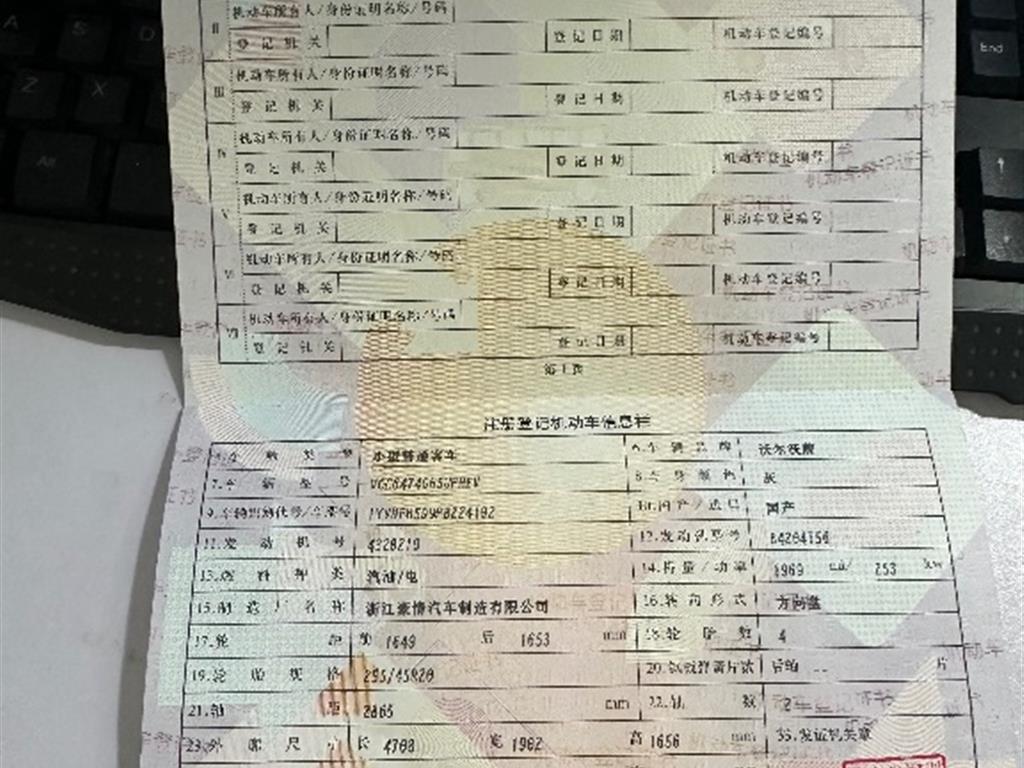 II 机动车所有人/身份证明名称/号码
登记机关 登记日期 机动车登记编号
III 机动车所有人/身份证明名称/号码
登记机关 登记日期 机动车登记编号
IV 机动车所有人/身份证明名称/号码
登记机关 登记日期 机动车登记编号
V 机动车所有人/身份证明名称/号码
登记机关 登记日期 机动车登记编号
VI 机动车所有人/身份证明名称/号码
登记机关 登记日期 机动车登记编号
VII 机动车所有人/身份证明名称/号码
登记机关 登记日期 机动车登记编号
第1页
注册登记机动车信息栏
5.车辆类型 小型普通客车 6.车辆品牌 沃尔沃牌
7.车辆型号 8.车身颜色 灰
9.车辆识别代号/车架号 10.国产/进口 国产
11.发动机号 4320210 12.发动机型号
13.燃料种类 汽油/电 14.排量/功率 1969 ml/ 253 kw
15.制造厂名称 浙江豪情汽车制造有限公司 16.转向形式 方向盘
17.轮距 前 1649 后 1653 mm 18.轮胎数 4
19.轮胎规格 20.钢板弹簧片数 后轴 -- 片
21.轴距 2865 mm 22.轴数 2
23.外廓尺寸 长 4708 宽 1902 高 1656 mm 33.发证机关章